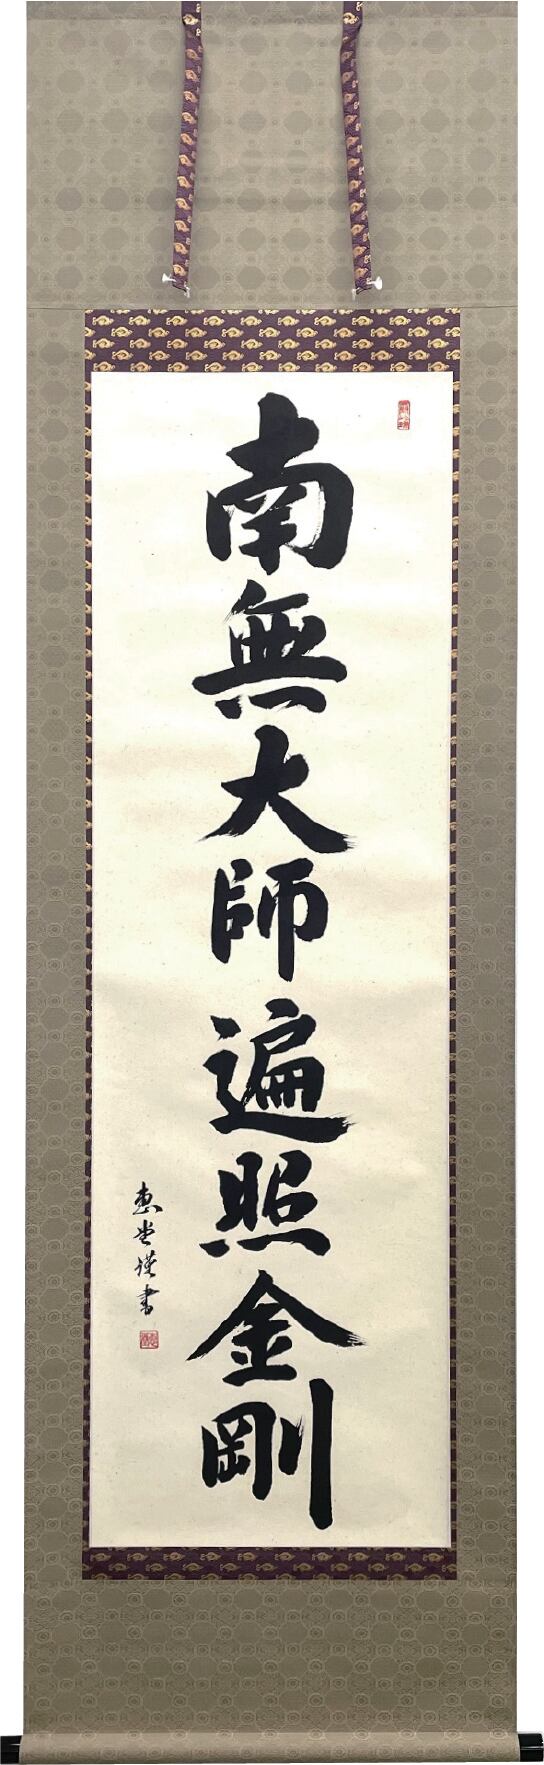 南無大師遍照金剛
恵堂謹書